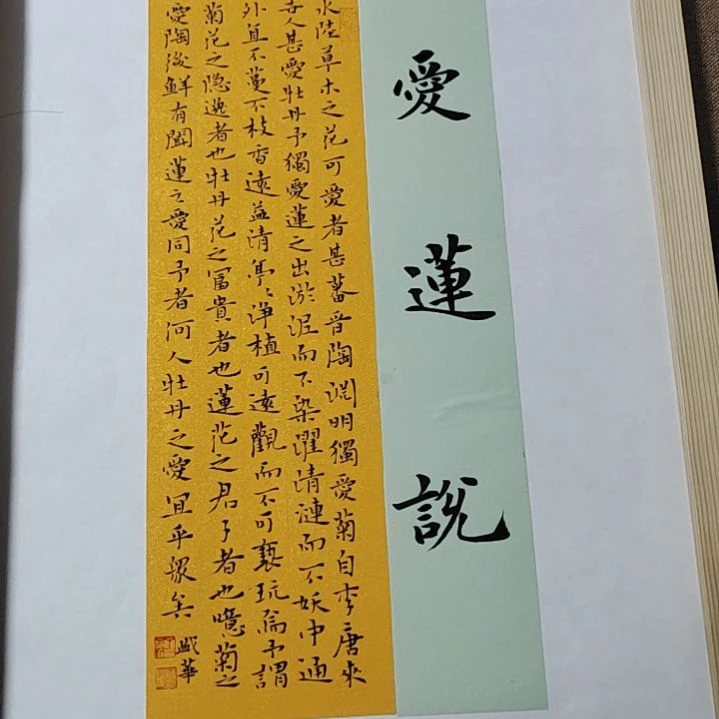 愛蓮說
水陸草木之花可愛者甚蕃晉陶淵明獨愛菊自李唐來
世人甚愛牡丹予獨愛蓮之出淤泥而不染濯清漣而不妖中通
外直不蔓不枝香遠益清亭〻淨植可遠觀而不可褻玩焉予謂
菊花之隐逸者也牡丹花之富貴者也蓮花之君子者也噫菊之
愛陶後鮮有聞蓮之愛同予者何人牡丹之愛宜乎眾矣
盛華